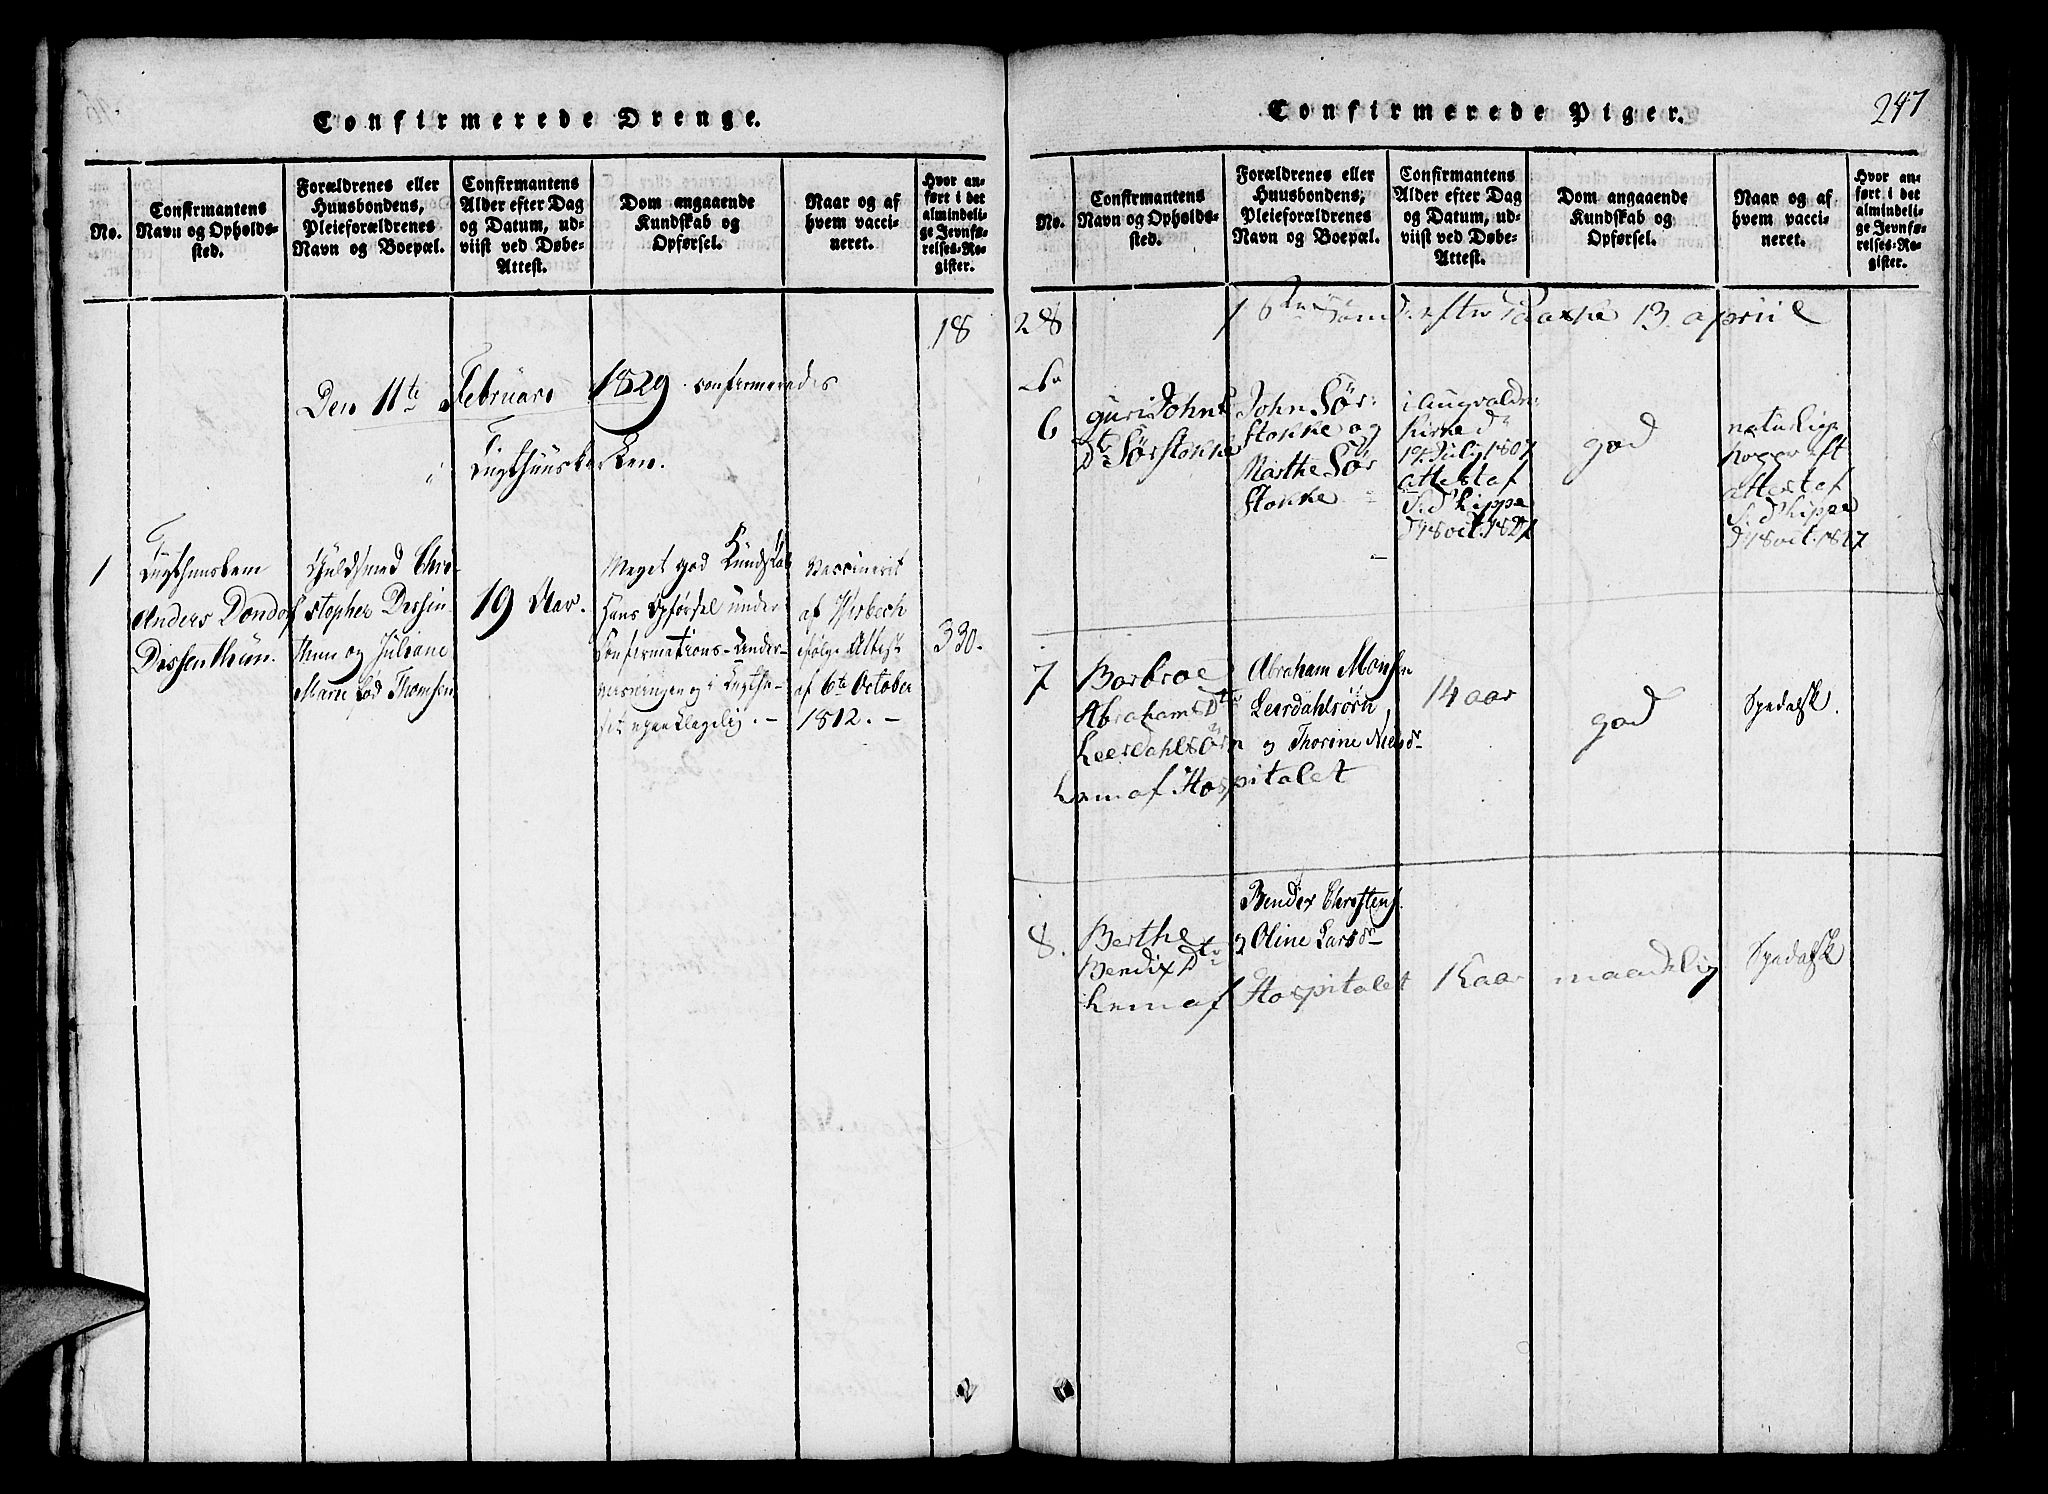 Confirmerede Drenge.
No.
Confirmantens
Navn og Opholds-
sted.
Forældrenes eller
Huusbondens,
Pleieforældrenes
Navn og Boepæl.
Confirmantens
Alder efter Dag
og Datum, ud-
viist ved Døbe-
Attest.
Dom angaaende
Kundskab og
Opførsel.
Naar og af
hvem vacci-
neret.
Hvor an-
ført i det
almindeli-
ge Jevnfø-
relses-Re-
gister.
18
Den 11te Februari 1829 confirmeredes
i Tugthuuskirken.
1
Tugthuuslem
Anders Dondorf
Dessenthun.
Guldsmed Chri-
stopher Dessen-
thun og Juliane
Marie fød Thomsen
19 Aar.
Meget god Kundskab
Hans Opførsel under
Confirmations-Under-
viisningen og i Tugthu-
set upaaklagelig. -
Vaccineret
af Wisbech
ifølge Attest
af 6te October
1812. -
330.
Confirmerede Piger.
247
No.
Confirmantens
Navn og Opholds-
sted.
Forældrenes eller
Huusbondens,
Pleieforældrenes
Navn og Boepæl.
Confirmantens
Alder efter Dag
og Datum, ud-
viist ved Døbe-
Attest.
Dom angaaende
Kundskab og
Opførsel.
Naar og af
hvem vacci-
neret.
Hvor an-
ført i det
almindeli-
ge Jevnfø-
relses-Re-
gister.
28 1 Sønd. efter Paaske 13. april
6
guri Johns
Dtr Sørstokke
John Sør-
stokke og
Marthe Sør
Stokke
i augvalds
kirke d
12 July 1807
attest af
S. d' Lippe
d 18 oct. 1827
god
naturlige
kopper eft
attest af
S. d' Lippe
d 18 oct. 1827
7
Barbroe
Abrahams Dtr
Leerdahlsörn
Lem af Hospitalet
Abraham Monsen
Leerdahlsörn,
og Thorine Nielsdr
14 aar
god
Spedalsk.
8.
Berthe
Bendix Dtr
Lem af Hospitalet
Bendix Christens.
og Oline Larsdr
aar
maadelig
Spedalsk